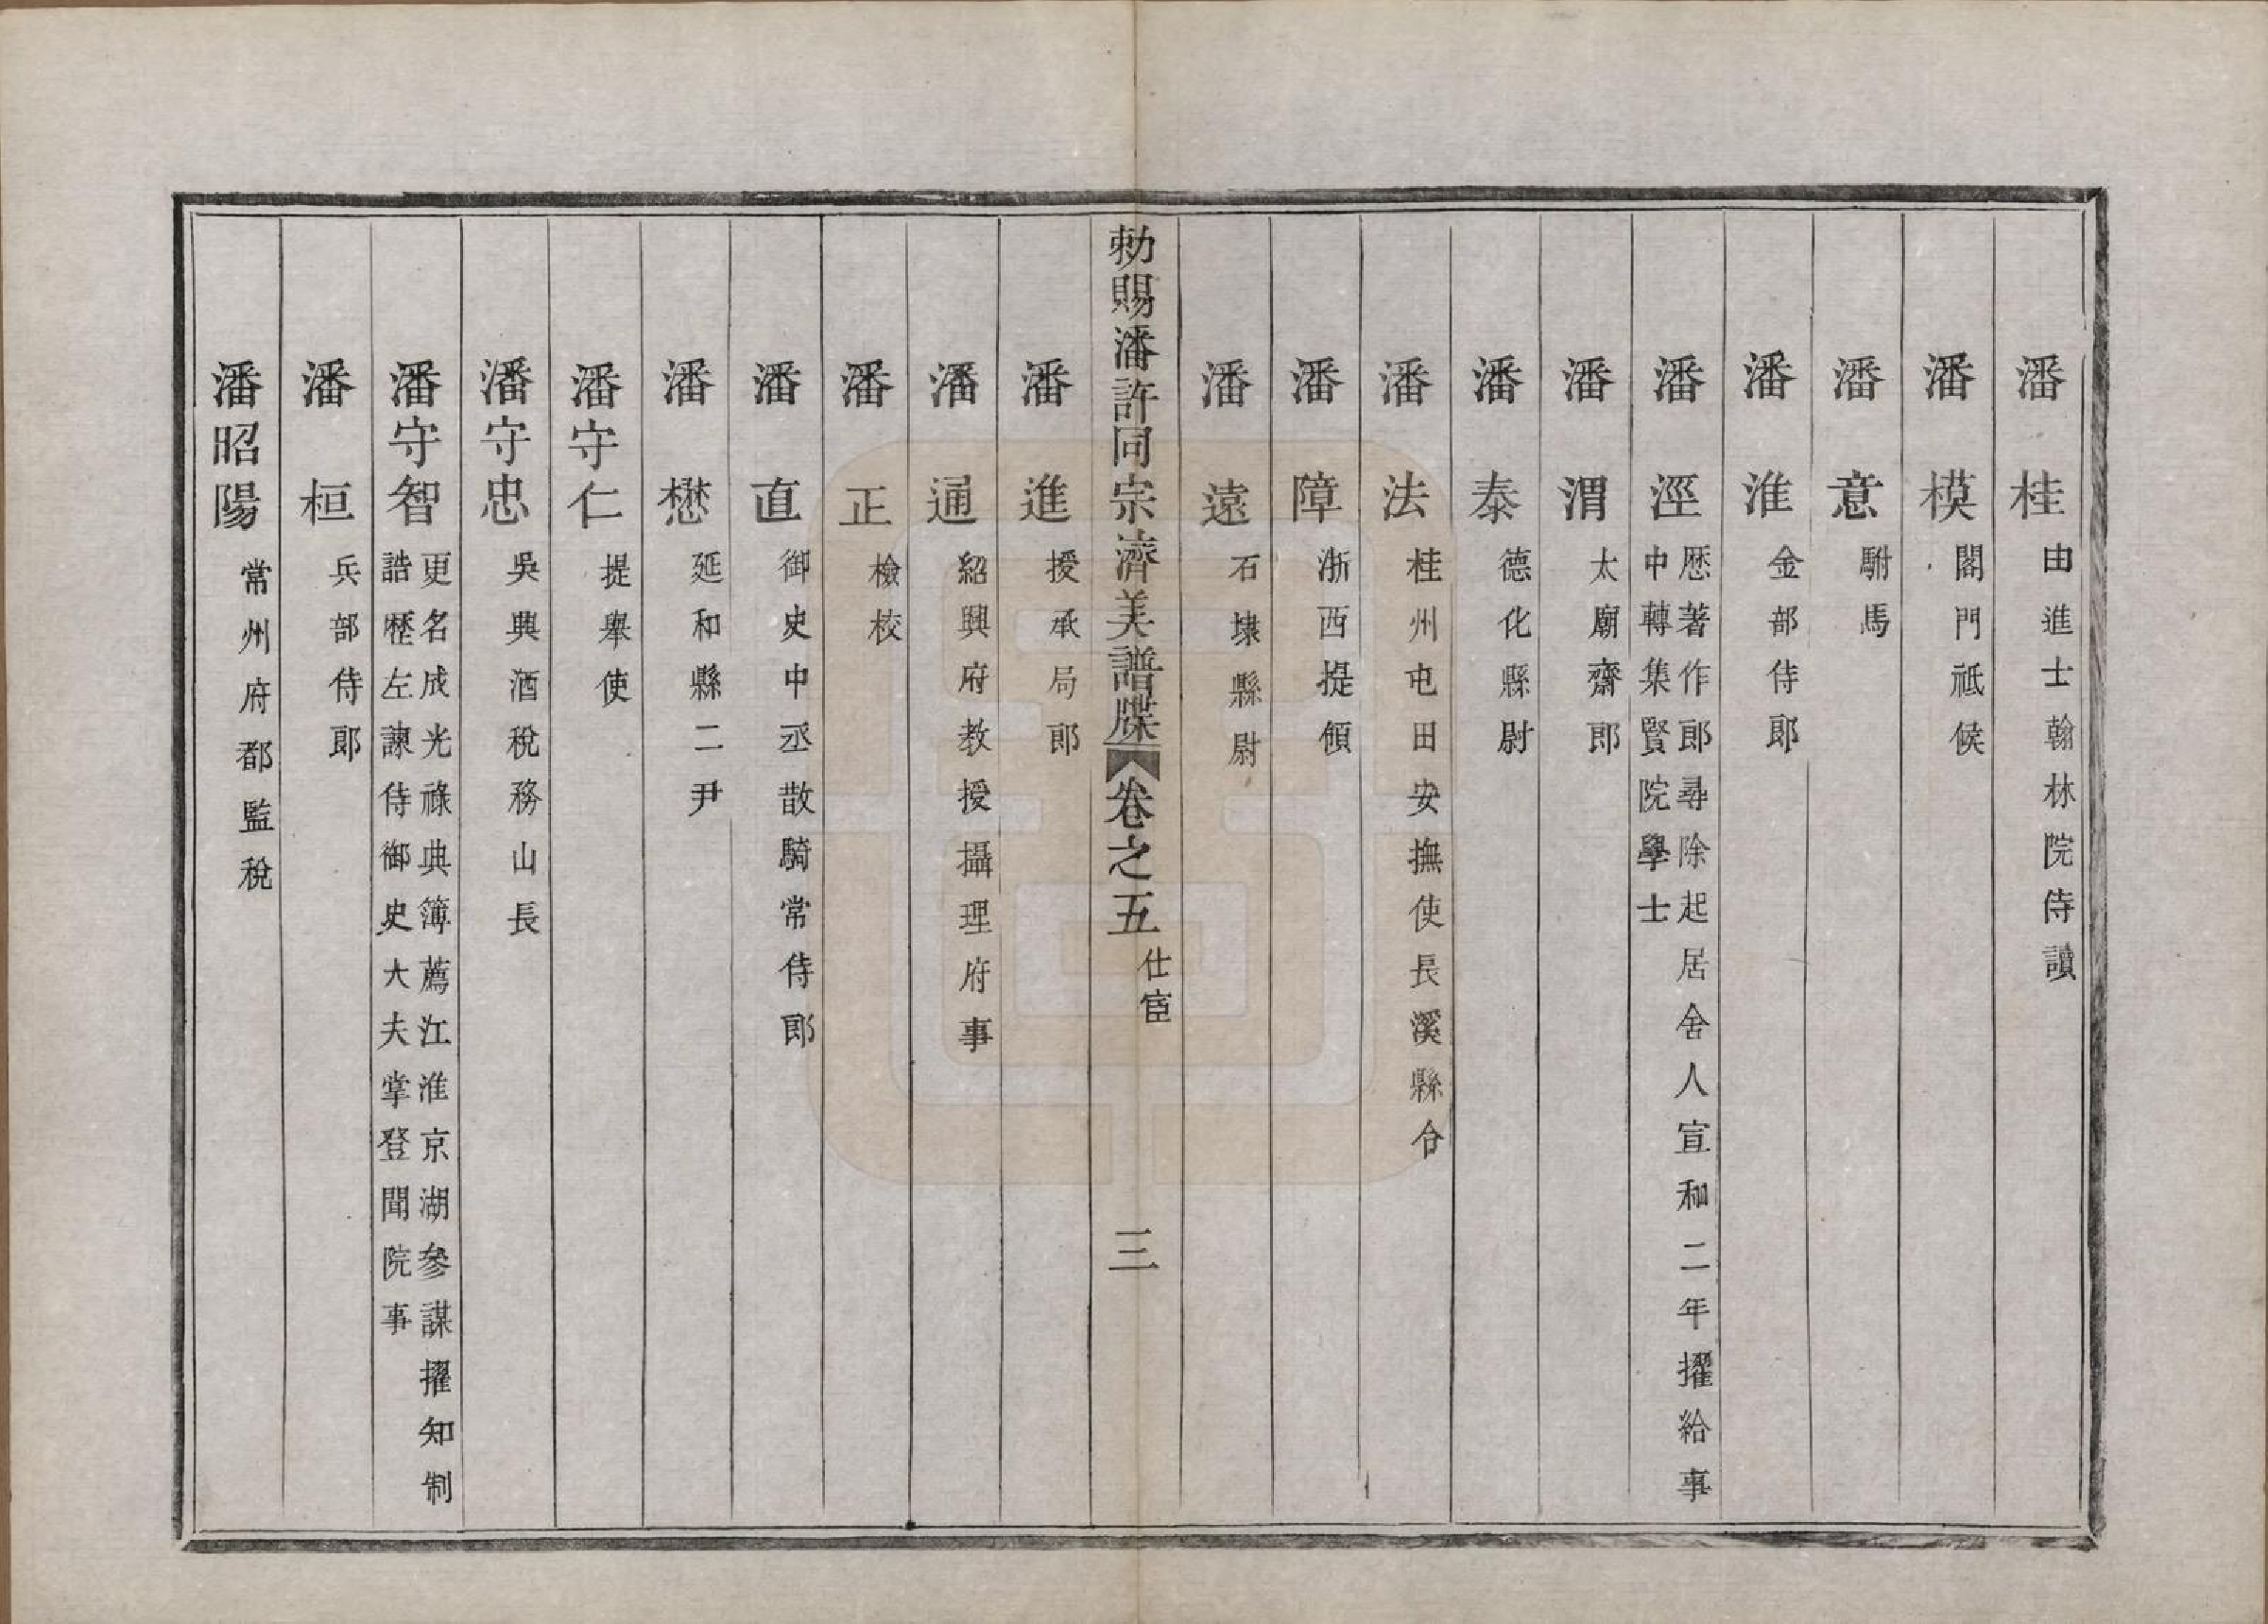 潘桂 由進士翰林院侍讀
潘模 閣門祗候
潘意 駙馬
潘淮 金部侍郎
潘涇 歷著作郎尋除起居舍人宣和二年擢給事
中轉集賢院學士
潘渭 太廟齋郎
潘泰 德化縣尉
潘法 桂州屯田安撫使長溪縣令
潘障 浙西提領
潘遠 石埭縣尉
勅賜潘許同宗濟美譜牒 卷之五 仕宦 三
潘進 授承局郎
潘通 紹興府教授攝理府事
潘正 檢校
潘直 御史中丞散騎常侍郎
潘懋 延和縣二尹
潘守仁 提舉使
潘守忠 吳興酒稅務山長
潘守智 更名成光祿典簿薦江淮京湖參謀擢知制
誥歷左諫侍御史大夫掌登聞院事
潘桓 兵部侍郎
潘昭陽 常州府都監稅